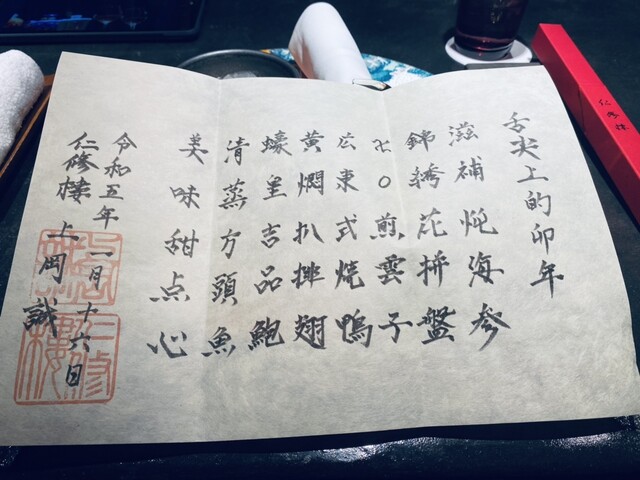 舌尖上的卯年
滋補炖海参
錦綉花拼盤
XO煎雲子
広東式焼鴨
黄燜扒排翅
蠔皇吉品鮑
清蒸方頭魚
美味甜点心
令和五年一月十六日
仁修樓 上岡誠
仁修樓